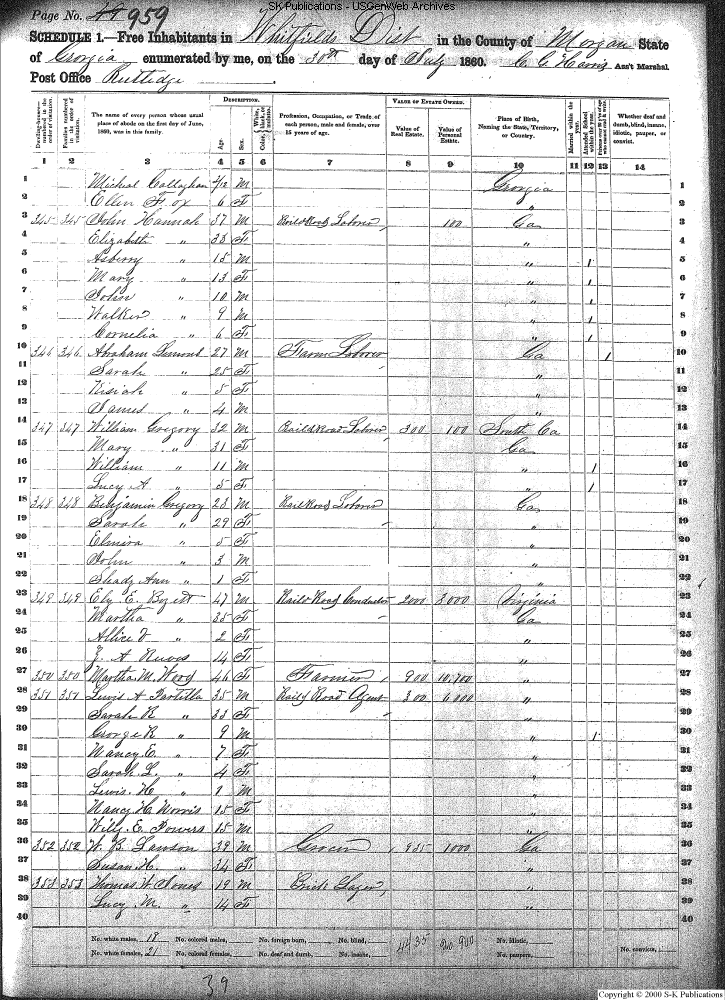 SK Publications - USGenWeb Archives
Page No. 49 959
SCHEDULE 1.—Free Inhabitants in Whitfields Dist in the County of Morgan State
of Georgia enumerated by me, on the 30th day of July 1860. C. C. Harris Ass't Marshal.
Post Office Rutledge
Dwelling-houses—numbered in the order of visitation.
Families numbered in the order of visitation.
The name of every person whose usual place of abode on the first day of June, 1860, was in this family.
DESCRIPTION.
Age.
Sex.
Color, White, black, or mulatto.
Profession, Occupation, or Trade of each person, male and female, over 15 years of age.
VALUE OF ESTATE OWNED.
Value of Real Estate.
Value of Personal Estate.
Place of Birth, Naming the State, Territory, or Country.
Married within the year.
Attended School within the year.
Persons over 20 y'rs of age who cannot read & write.
Whether deaf and dumb, blind, insane, idiotic, pauper, or convict.
1 2 3 4 5 6 7 8 9 10 11 12 13 14
1 Michael Callaghan 2/12 M Georgia 1
2 Ellen Fox 6 F " 2
3 345 345 John Hannah 37 M Rail Road Laborer 100 Ga 3
4 Elizabeth " 33 F " 4
5 Asberry " 15 M " 1 5
6 Mary " 13 F " 1 6
7 John " 10 M " 1 7
8 Walker " 9 M " 1 8
9 Cornelia " 6 F " 1 9
10 346 346 Abraham 27 M Farm Laborer Ga 1 10
11 Sarah " 25 F " 11
12 " 5 F " 12
13 James " 4 M " 13
14 347 347 William Gregory 32 M Rail Road Laborer 300 100 South Ca 14
15 Mary " 31 F Ga 15
16 William " 11 M " 1 16
17 Lucy A " 5 F " 1 17
18 348 348 Benjamin Gregory 23 M Rail Road Laborer Ga 18
19 Sarah " 29 F " 19
20 Elmira " 5 F " 20
21 John " 3 M " 21
22 Shady Ann " 1 F " 22
23 349 349 Ely E 47 M Rail Road Conductor 2000 8000 Virginia 23
24 Martha " 35 F Ga 24
25 Allice V " 2 F " 25
26 Z. A Reeves 14 F " 26
27 350 350 Martha M. Wood 46 F Farmer 900 10,700 " 27
28 351 351 Lewis A Partilla 35 M Rail Road Agent 300 6000 " 28
29 Sarah R " 33 F " 29
30 George R " 9 M " 1 30
31 Nancy E. " 7 F " 31
32 Sarah L. " 4 F " 32
33 Lewis. H " 1 M " 33
34 Nancy H. Norris 15 F " 34
35 Wily. E. Powers 15 M " 35
36 352 352 W. B. Lawson 39 M Grocer 935 1000 Ga 36
37 Susan H. " 34 F " 37
38 353 353 Thomas W. Jones 19 M Brick 38
39 Lucy M. " 14 F " 39
40 40
No. white males, 19 No. colored males, No. foreign born, No. blind, 4435 No. idiotic, No. convicts,
No. white females, 21 No. colored females, No. deaf and dumb, No. insane, No. paupers,
39
Copyright © 2000 S-K Publications